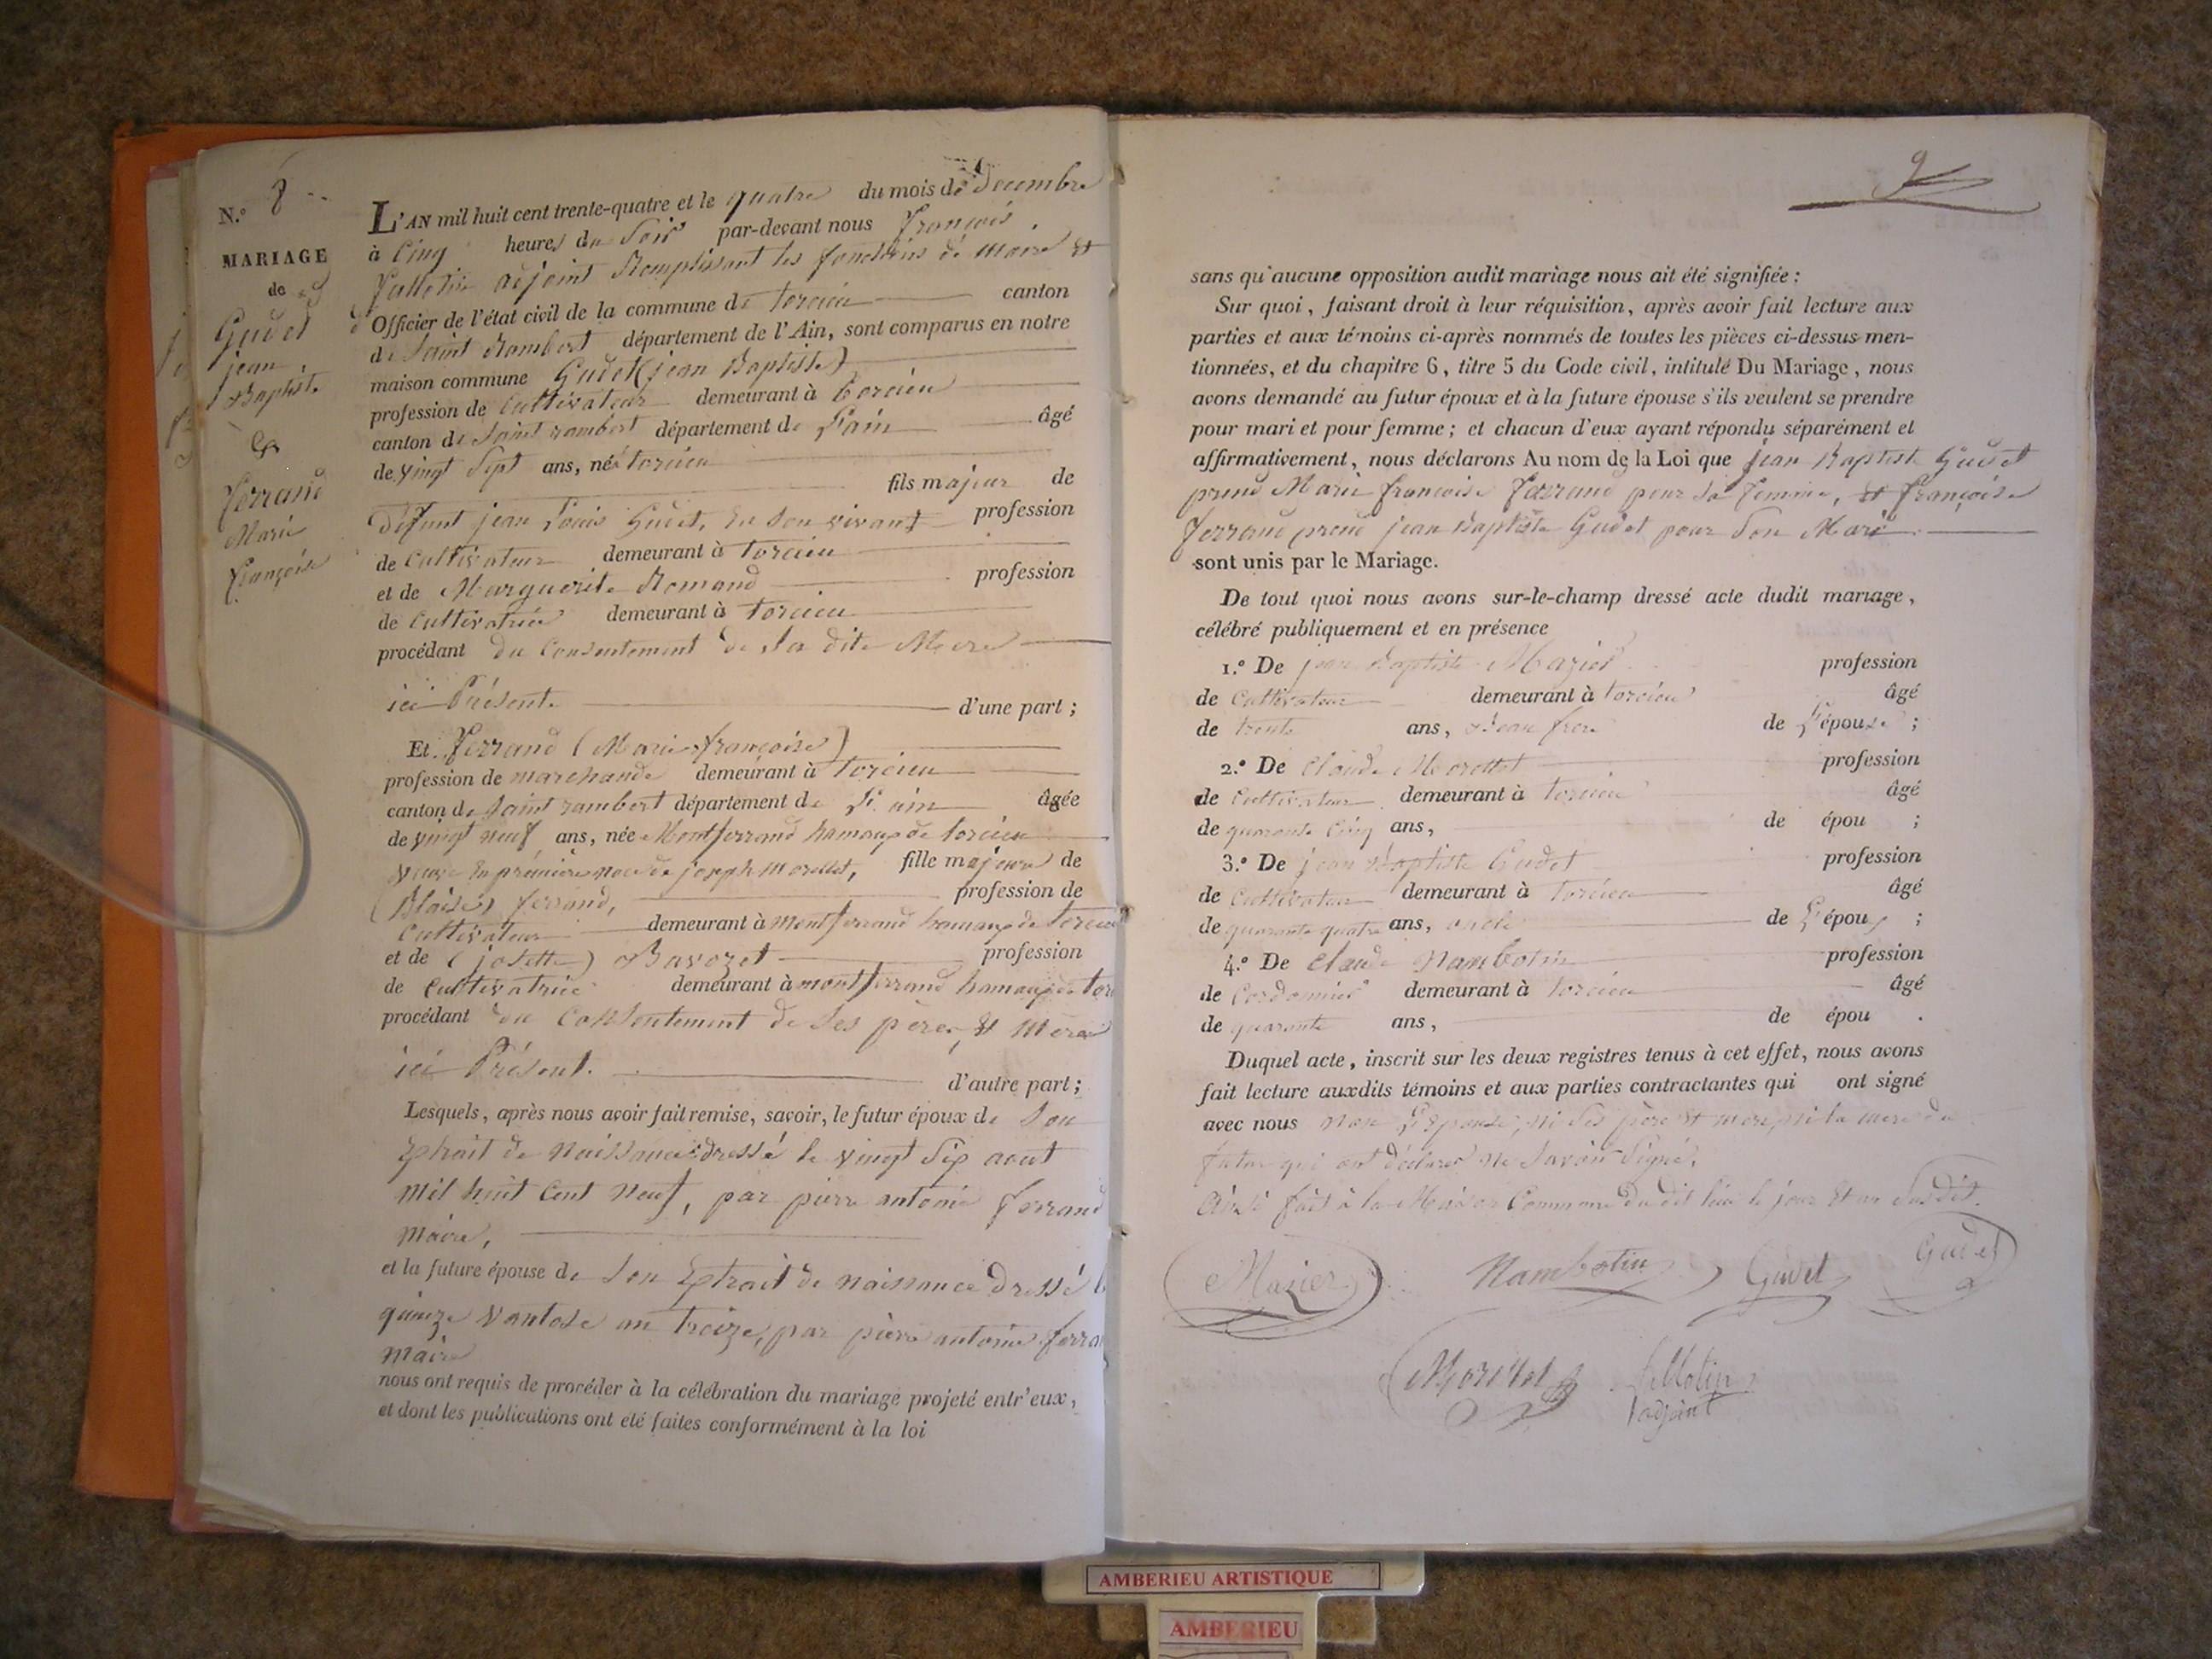 N.° 8
MARIAGE
de
Gudet
jean
Baptiste
&
Ferrand
Marie
françoise
L'AN mil huit cent trente-quatre et le quatre du mois de Decembre
à Cinq heures du Soir par-devant nous François
adjoint Remplissant les fonctions de Maire et
d'Officier de l'état civil de la commune de torcieu canton
de Saint Rambert département de l'Ain, sont comparus en notre
maison commune Gudet (jean Baptiste)
profession de Cultivateur demeurant à torcieu
canton de Saint rambert département de l'ain âgé
de vingt Sept ans, né à torcieu
fils majeur de
Défunt jean Louis Gudet, en son vivant profession
de Cultivateur demeurant à torcieu
et de Marguerite Romand profession
de Cultivatrice demeurant à torcieu
procédant du Consentement de sa dite Mere
ici Présente d'une part ;
Et Ferrand (Marie françoise)
profession de marchande demeurant à torcieu
canton de Saint rambert département de l'ain âgée
de vingt neuf ans, née Montferrand hamaux de torcieu
veuve en première noce de joseph morellet, fille majeure de
(Blaise) ferrand, profession de
Cultivateur demeurant à montferrand hamaux de torcieu
et de (josette) Bavozet profession
de Cultivatrice demeurant à montferrand hamaux de tor
procédant du Consentement de ses père & Mère
ici Présent. d'autre part ;
Lesquels, après nous avoir fait remise, savoir, le futur époux de Son
Extrait de Naissance dressé le vingt Six aout
Mil huit Cent Neuf, par pierre antoine ferrand
Maire,
et la future épouse de Son Extrait de Naissance Dressé le
quinze Vantose an treize, par pierre antoine ferra
Maire
nous ont requis de procéder à la célébration du mariage projeté entr'eux,
et dont les publications ont été faites conformément à la loi
9
sans qu'aucune opposition audit mariage nous ait été signifiée :
Sur quoi, faisant droit à leur réquisition, après avoir fait lecture aux
parties et aux témoins ci-après nommés de toutes les pièces ci-dessus men-
tionnées, et du chapitre 6, titre 5 du Code civil, intitulé Du Mariage, nous
avons demandé au futur époux et à la future épouse s'ils veulent se prendre
pour mari et pour femme ; et chacun d'eux ayant répondu séparément et
affirmativement, nous déclarons Au nom de la Loi que jean Baptiste Gudet
prend Marie françoise ferrand pour sa femme, et françoise
ferrand prend jean Baptiste Gudet pour Son Mari
sont unis par le Mariage.
De tout quoi nous avons sur-le-champ dressé acte dudit mariage,
célébré publiquement et en présence
1.° De jean Baptiste Mazier profession
de Cultivateur demeurant à torcieu âgé
de trente ans, Beau frere de L'épouse ;
2.° De Claude Morellet profession
de Cultivateur demeurant à torcieu âgé
de quarante Cinq ans, de épou ;
3.° De jean Baptiste Gudet profession
de Cultivateur demeurant à torcieu âgé
de quarante quatre ans, oncle de L'époux ;
4.° De Claude Nambotin profession
de Cordonnier demeurant à torcieu âgé
de quarante ans, de épou .
Duquel acte, inscrit sur les deux registres tenus à cet effet, nous avons
fait lecture auxdits témoins et aux parties contractantes qui ont signé
avec nous Non L'Epouse, ni Ses père et mere, ni la mere du
futur qui ont déclarer Ne Savoir Signé.
Ainsi fait à la Maison Commune du dit lieu le jour et an Susdit.
Mazier Nambotin Gudet Gudet
Morellet
l'adjoint
AMBERIEU ARTISTIQUE
AMBERIEU